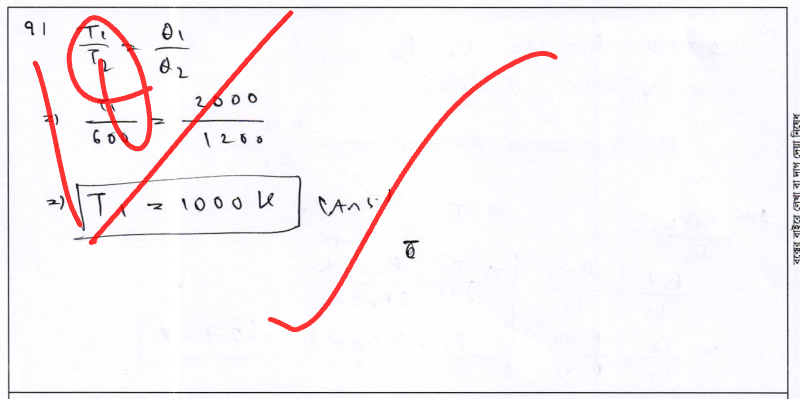 91 T₁/T₂ = θ₁/θ₂
=) T₁/600 = 2000/1200
=) T₁ = 1000 K (Ans)
বক্সের বাইরে লেখা বা দাগ দেয়া নিষেধ